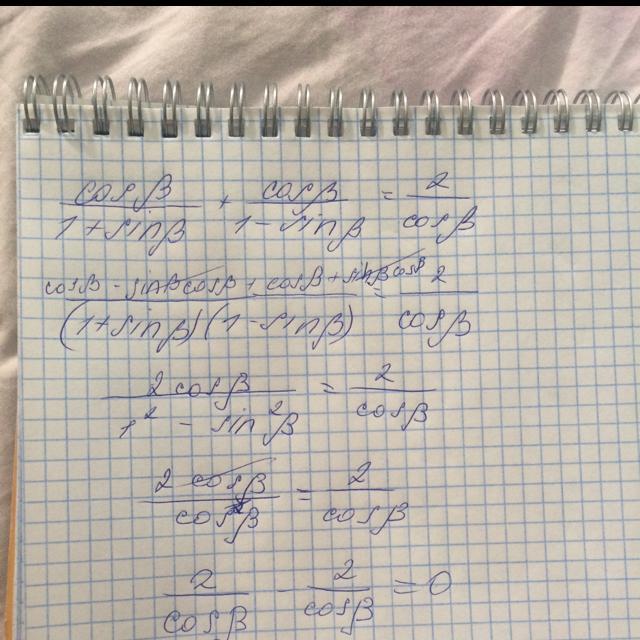 cosβ/(1+sinβ) + cosβ/(1-sinβ) = 2/cosβ
(cosβ - sinβcosβ + cosβ + sinβcosβ)/((1+sinβ)(1-sinβ)) = 2/cosβ
2cosβ/(1² - sin²β) = 2/cosβ
2cosβ/cos²β = 2/cosβ
2/cosβ - 2/cosβ = 0